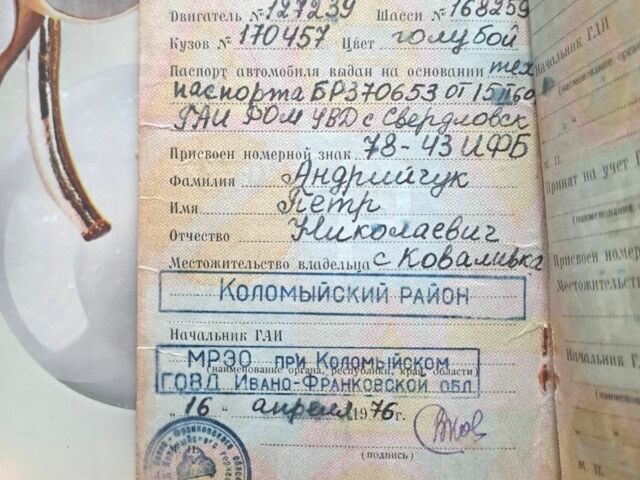 Двигатель № 127239 Шасси № 168259
Кузов № 170457 Цвет голубой
Паспорт автомобиля выдан на основании тех
паспорта БР370653 от 15
ГАИ РОМ УВД с Свердловск
Присвоен номерной знак 78-43 ИФБ
Фамилия Андрийчук
Имя Петр
Отчество Николаевич
Местожительство владельца с Коваливка
КОЛОМЫЙСКИЙ РАЙОН
Начальник ГАИ
МРЭО ПРИ КОЛОМЫЙСКОМ
(наименование органа, республики, края, области)
ГОВД ИВАНО-ФРАНКОВСКОЙ ОБЛ
„16“ апреля 1976г.
(подпись)
Начальник ГАИ
(наименование орган
М. П.
Принят на учет Г
(наименование
Присвоен номер
Местожительств
Начальник ГА
(наименование
М. П.